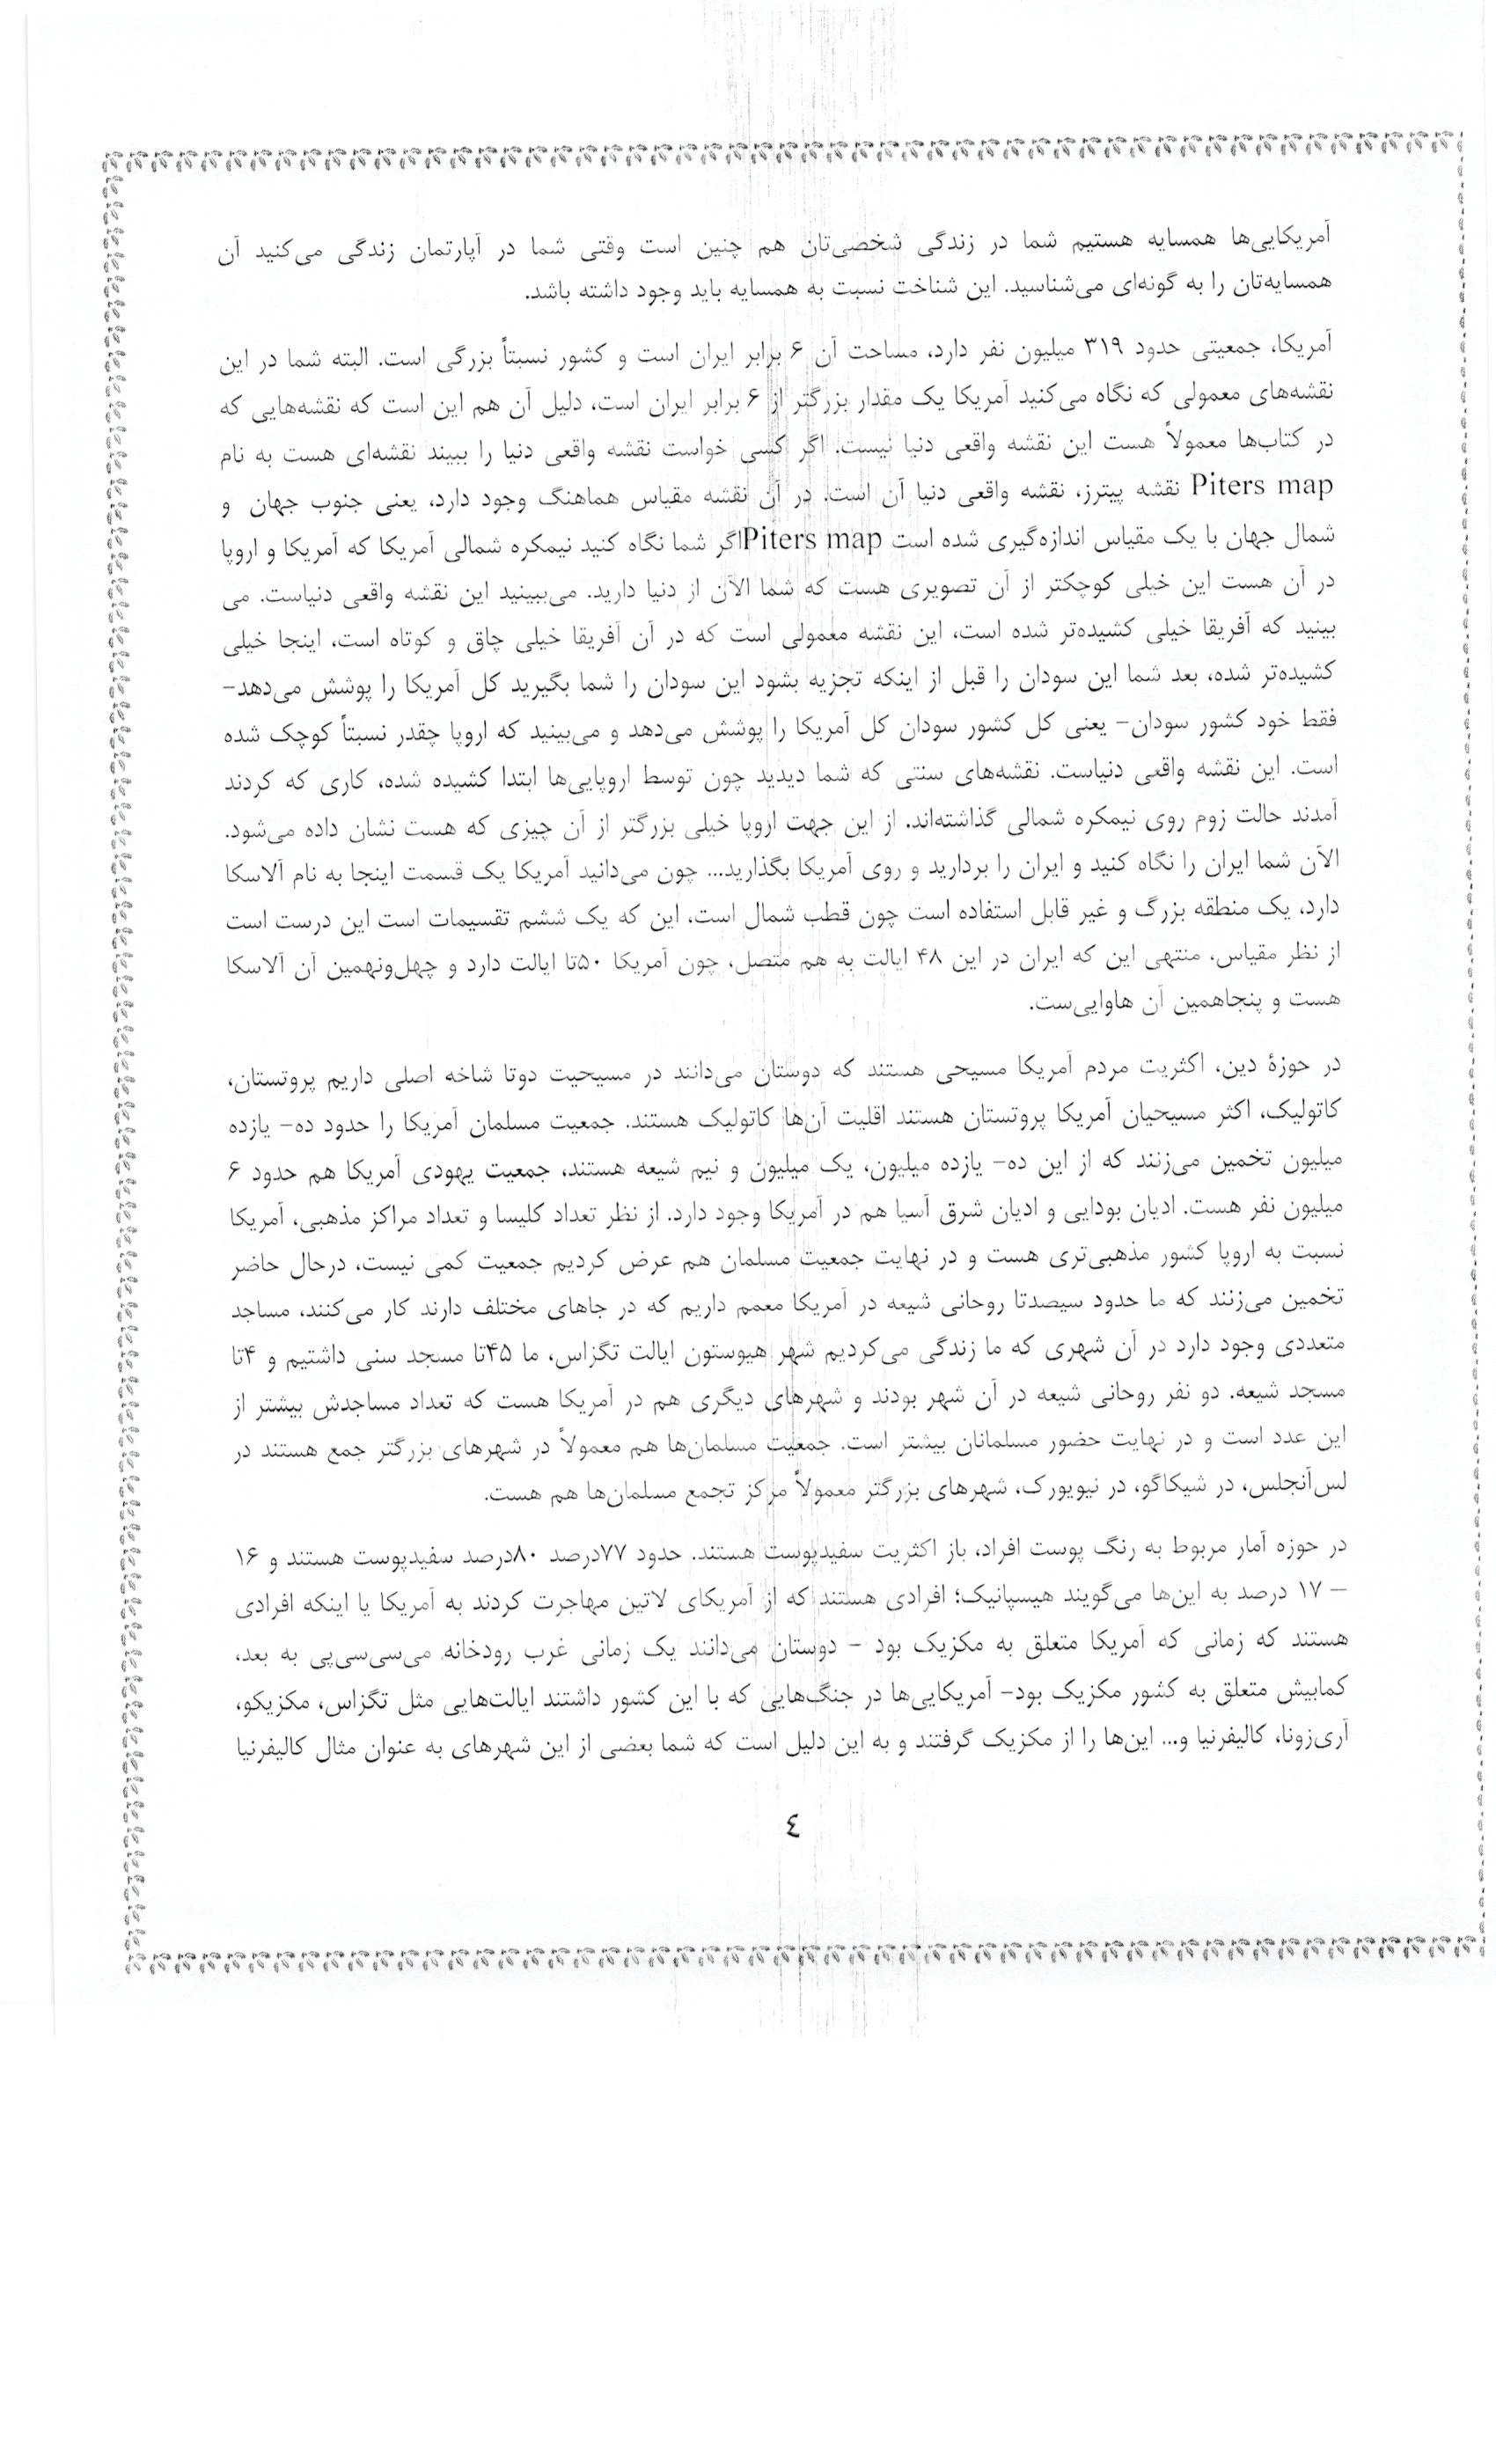 آمریکایی‌ها همسایه هستیم شما در زندگی شخصی‌تان هم چنین است وقتی شما در آپارتمان زندگی می‌کنید آن
همسایه‌تان را به گونه‌ای می‌شناسید. این شناخت نسبت به همسایه باید وجود داشته باشد.
آمریکا، جمعیتی حدود ۳۱۹ میلیون نفر دارد، مساحت آن ۶ برابر ایران است و کشور نسبتاً بزرگی است. البته شما در این
نقشه‌های معمولی که نگاه می‌کنید آمریکا یک مقدار بزرگتر از ۶ برابر ایران است، دلیل آن هم این است که نقشه‌هایی که
در کتاب‌ها معمولاً هست این نقشه واقعی دنیا نیست. اگر کسی خواست نقشه واقعی دنیا را ببیند نقشه‌ای هست به نام
Piters map نقشه پیترز، نقشه واقعی دنیا آن است. در آن نقشه مقیاس هماهنگ وجود دارد، یعنی جنوب جهان و
شمال جهان با یک مقیاس اندازه‌گیری شده است Piters mapاگر شما نگاه کنید نیمکره شمالی آمریکا که آمریکا و اروپا
در آن هست این خیلی کوچکتر از آن تصویری هست که شما الآن از دنیا دارید. می‌ببینید این نقشه واقعی دنیاست. می
بینید که آفریقا خیلی کشیده‌تر شده است، این نقشه معمولی است که در آن آفریقا خیلی چاق و کوتاه است، اینجا خیلی
کشیده‌تر شده، بعد شما این سودان را قبل از اینکه تجزیه بشود این سودان را شما بگیرید کل آمریکا را پوشش می‌دهد-
فقط خود کشور سودان- یعنی کل کشور سودان کل آمریکا را پوشش می‌دهد و می‌بینید که اروپا چقدر نسبتاً کوچک شده
است. این نقشه واقعی دنیاست. نقشه‌های سنتی که شما دیدید چون توسط اروپایی‌ها ابتدا کشیده شده، کاری که کردند
آمدند حالت زوم روی نیمکره شمالی گذاشته‌اند. از این جهت اروپا خیلی بزرگتر از آن چیزی که هست نشان داده می‌شود.
الآن شما ایران را نگاه کنید و ایران را بردارید و روی آمریکا بگذارید... چون می‌دانید آمریکا یک قسمت اینجا به نام آلاسکا
دارد، یک منطقه بزرگ و غیر قابل استفاده است چون قطب شمال است، این که یک ششم تقسیمات است این درست است
از نظر مقیاس، منتهی این که ایران در این ۴۸ ایالت به هم متصل، چون آمریکا ۵۰تا ایالت دارد و چهل‌ونهمین آن آلاسکا
هست و پنجاهمین آن هاوایی‌ست.
در حوزهٔ دین، اکثریت مردم آمریکا مسیحی هستند که دوستان می‌دانند در مسیحیت دوتا شاخه اصلی داریم پروتستان،
کاتولیک، اکثر مسیحیان آمریکا پروتستان هستند اقلیت آن‌ها کاتولیک هستند. جمعیت مسلمان آمریکا را حدود ده- یازده
میلیون تخمین می‌زنند که از این ده- یازده میلیون، یک میلیون و نیم شیعه هستند، جمعیت یهودی آمریکا هم حدود ۶
میلیون نفر هست. ادیان بودایی و ادیان شرق آسیا هم در آمریکا وجود دارد. از نظر تعداد کلیسا و تعداد مراکز مذهبی، آمریکا
نسبت به اروپا کشور مذهبی‌تری هست و در نهایت جمعیت مسلمان هم عرض کردیم جمعیت کمی نیست، درحال حاضر
تخمین می‌زنند که ما حدود سیصدتا روحانی شیعه در آمریکا معمم داریم که در جاهای مختلف دارند کار می‌کنند، مساجد
متعددی وجود دارد در آن شهری که ما زندگی می‌کردیم شهر هیوستون ایالت تگزاس، ما ۴۵تا مسجد سنی داشتیم و ۴تا
مسجد شیعه. دو نفر روحانی شیعه در آن شهر بودند و شهرهای دیگری هم در آمریکا هست که تعداد مساجدش بیشتر از
این عدد است و در نهایت حضور مسلمانان بیشتر است. جمعیت مسلمان‌ها هم معمولاً در شهرهای بزرگتر جمع هستند در
لس‌آنجلس، در شیکاگو، در نیویورک، شهرهای بزرگتر معمولاً مرکز تجمع مسلمان‌ها هم هست.
در حوزه آمار مربوط به رنگ پوست افراد، باز اکثریت سفیدپوست هستند. حدود ۷۷درصد ۸۰درصد سفیدپوست هستند و ۱۶
– ۱۷ درصد به این‌ها می‌گویند هیسپانیک؛ افرادی هستند که از آمریکای لاتین مهاجرت کردند به آمریکا یا اینکه افرادی
هستند که زمانی که آمریکا متعلق به مکزیک بود – دوستان می‌دانند یک زمانی غرب رودخانه می‌سی‌سی‌پی به بعد،
کمابیش متعلق به کشور مکزیک بود- آمریکایی‌ها در جنگ‌هایی که با این کشور داشتند ایالت‌هایی مثل تگزاس، مکزیکو،
آری‌زونا، کالیفرنیا و... این‌ها را از مکزیک گرفتند و به این دلیل است که شما بعضی از این شهرهای به عنوان مثال کالیفرنیا
٤